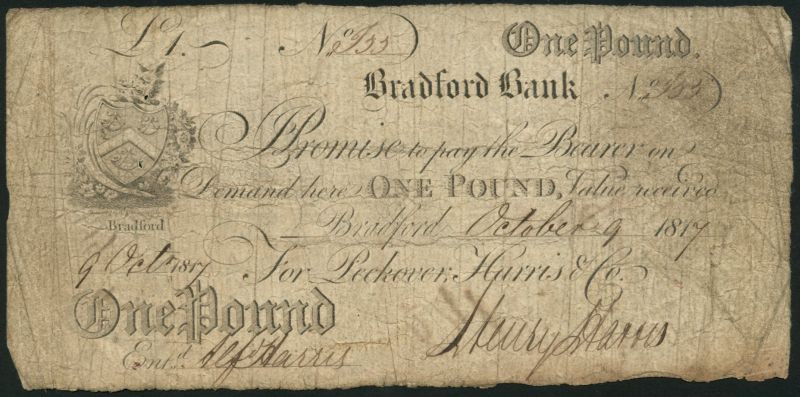 £1. No One Pound.
Bradford Bank No
I Promise to pay the Bearer on
Demand here ONE POUND, Value received
Bradford
Bradford October 9 1817
9 Octr 1817 For Peckover, Harris & Co.
One Pound
Entd. Harris Henry Harris